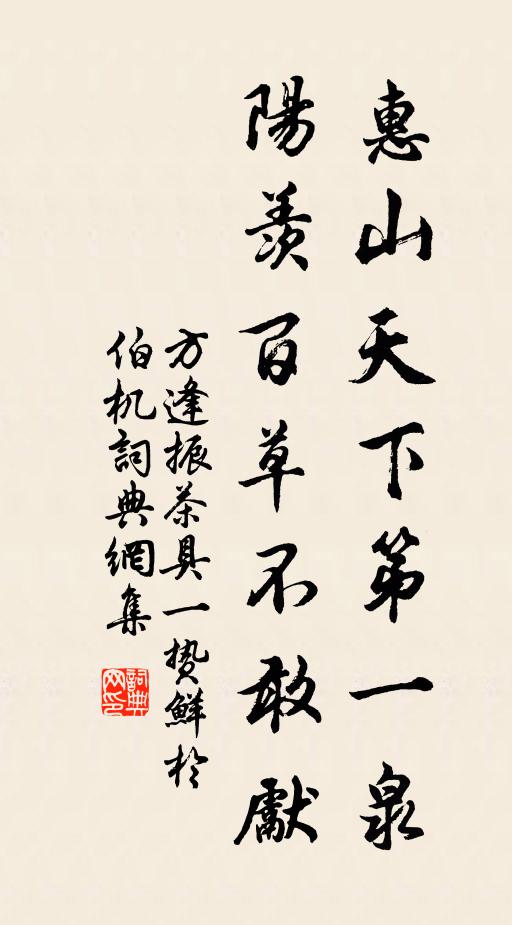 惠山天下第一泉
陽羨百草不敢獻
方逢振茶具一贽鮮於
伯机詞典網集
詞典
网印